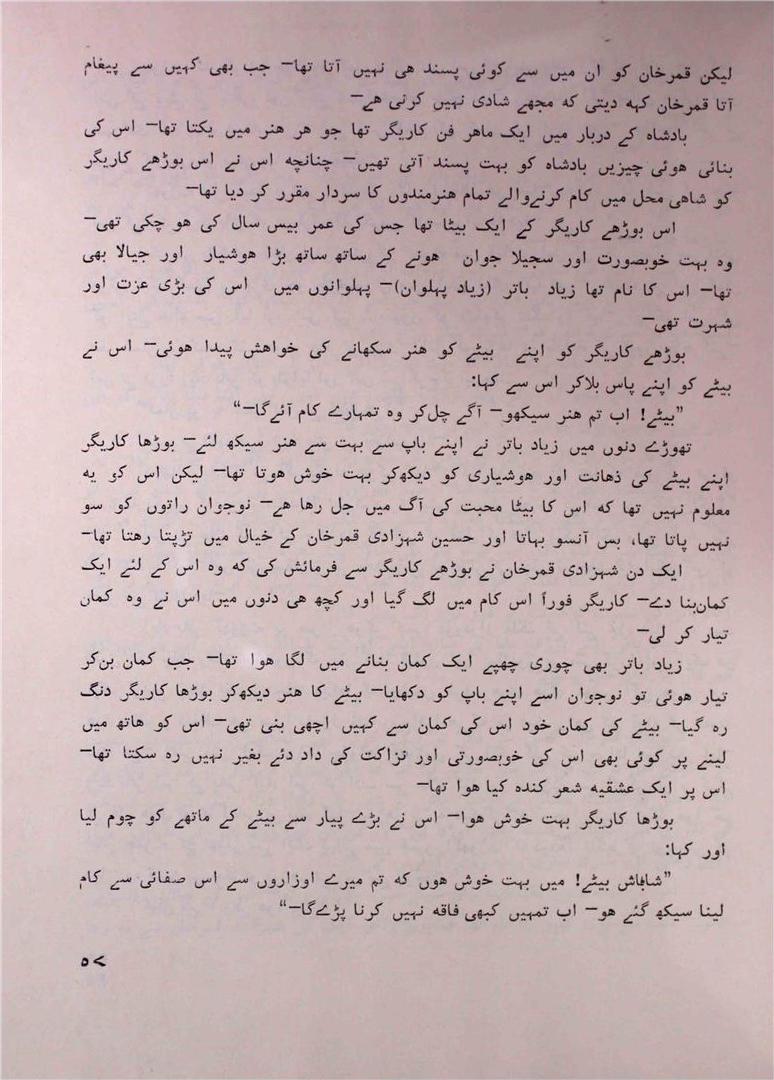 لیکن قمرخان کو ان میں سے کوئی پسند هی نہیں آتا تھا— جب بھی کہیں سے پیغام
آتا قمرخان کہه دیتی که مجھے شادی نہیں کرنی هے—
بادشاہ کے دربار میں ایک ماهر فن کاریگر تھا جو هر هنر میں یکتا تھا— اس کی
بنائی هوئی چیزیں بادشاہ کو بہت پسند آتی تھیں— چنانچه اس نے اس بوڑھے کاریگر
کو شاهی محل میں کام کرنےوالے تمام هنرمندوں کا سردار مقرر کر دیا تھا—
اس بوڑھے کاریگر کے ایک بیٹا تھا جس کی عمر بیس سال کی هو چکی تھی—
وہ بہت خوبصورت اور سجیلا جوان هونے کے ساتھ ساتھ بڑا هوشیار اور جیالا بھی
تھا— اس کا نام تھا زیاد باتر (زیاد پہلوان)— پہلوانوں میں اس کی بڑی عزت اور
شہرت تھی—
بوڑھے کاریگر کو اپنے بیٹے کو هنر سکھانے کی خواهش پیدا هوئی— اس نے
بیٹے کو اپنے پاس بلاکر اس سے کہا:
”بیٹے! اب تم هنر سیکھو— آگے چل‌کر وہ تمہارے کام آئےگا—“
تھوڑے دنوں میں زیاد باتر نے اپنے باپ سے بہت سے هنر سیکھ لئے— بوڑھا کاریگر
اپنے بیٹے کی ذهانت اور هوشیاری کو دیکھ‌کر بہت خوش هوتا تھا— لیکن اس کو یه
معلوم نہیں تھا که اس کا بیٹا محبت کی آگ میں جل رها هے— نوجوان راتوں کو سو
نہیں پاتا تھا، بس آنسو بہاتا اور حسین شہزادی قمرخان کے خیال میں تڑپتا رهتا تھا—
ایک دن شہزادی قمرخان نے بوڑھے کاریگر سے فرمائش کی که وہ اس کے لئے ایک
کمان‌بنا دے— کاریگر فوراً اس کام میں لگ گیا اور کچھ هی دنوں میں اس نے وہ کمان
تیار کر لی—
زیاد باتر بھی چوری چھپے ایک کمان بنانے میں لگا هوا تھا— جب کمان بن‌کر
تیار هوئی تو نوجوان اسے اپنے باپ کو دکھایا— بیٹے کا هنر دیکھ‌کر بوڑھا کاریگر دنگ
رہ گیا— بیٹے کی کمان خود اس کی کمان سے کہیں اچھی بنی تھی— اس کو هاتھ میں
لینے پر کوئی بھی اس کی خوبصورتی اور نزاکت کی داد دئے بغیر نہیں رہ سکتا تھا—
اس پر ایک عشقیه شعر کندہ کیا هوا تھا—
بوڑھا کاریگر بہت خوش هوا— اس نے بڑے پیار سے بیٹے کے ماتھے کو چوم لیا
اور کہا:
”شاباش بیٹے! میں بہت خوش هوں که تم میرے اوزاروں سے اس صفائی سے کام
لینا سیکھ گئے هو— اب تمہیں کبھی فاقه نہیں کرنا پڑےگا—“
۵۷